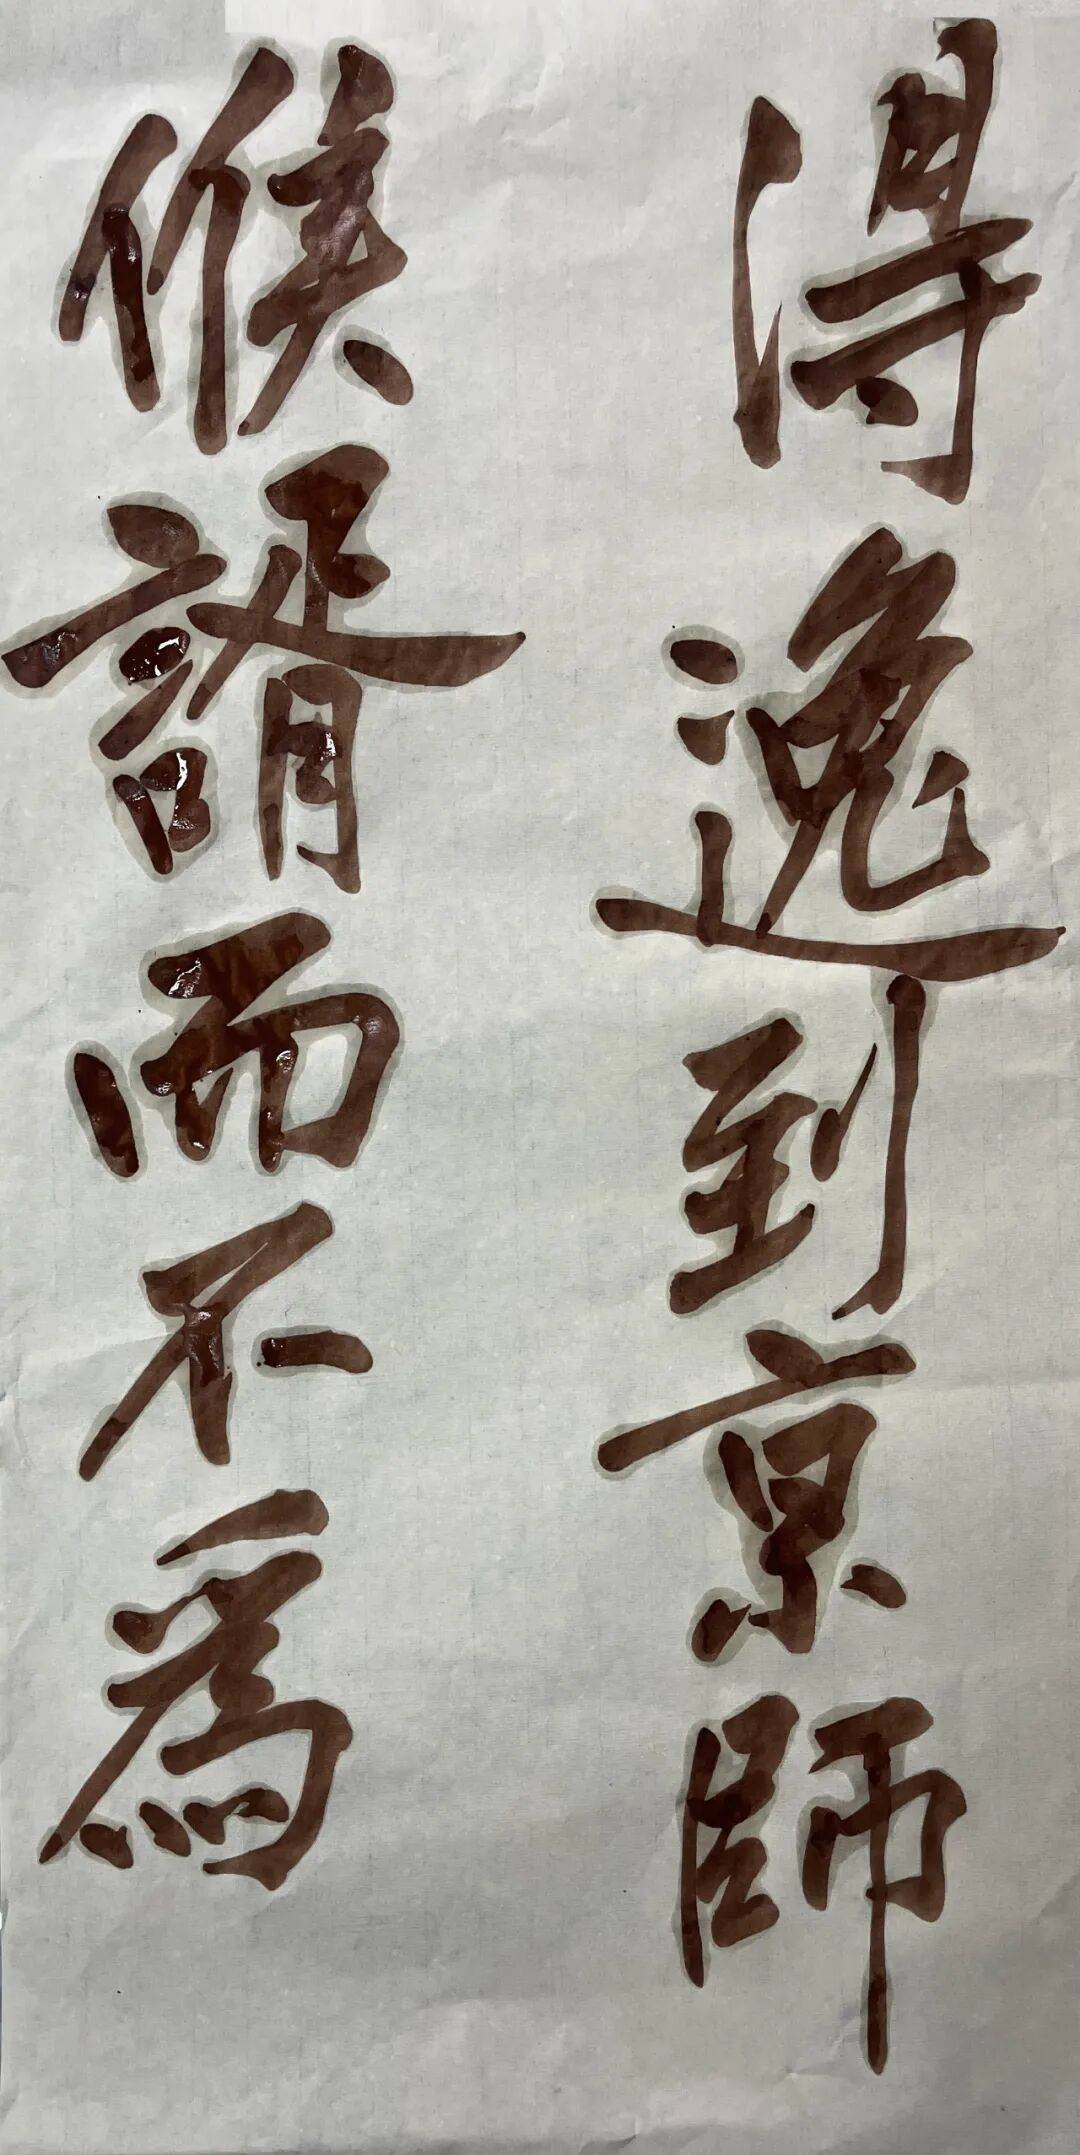 得逸到京師
候諝而不為